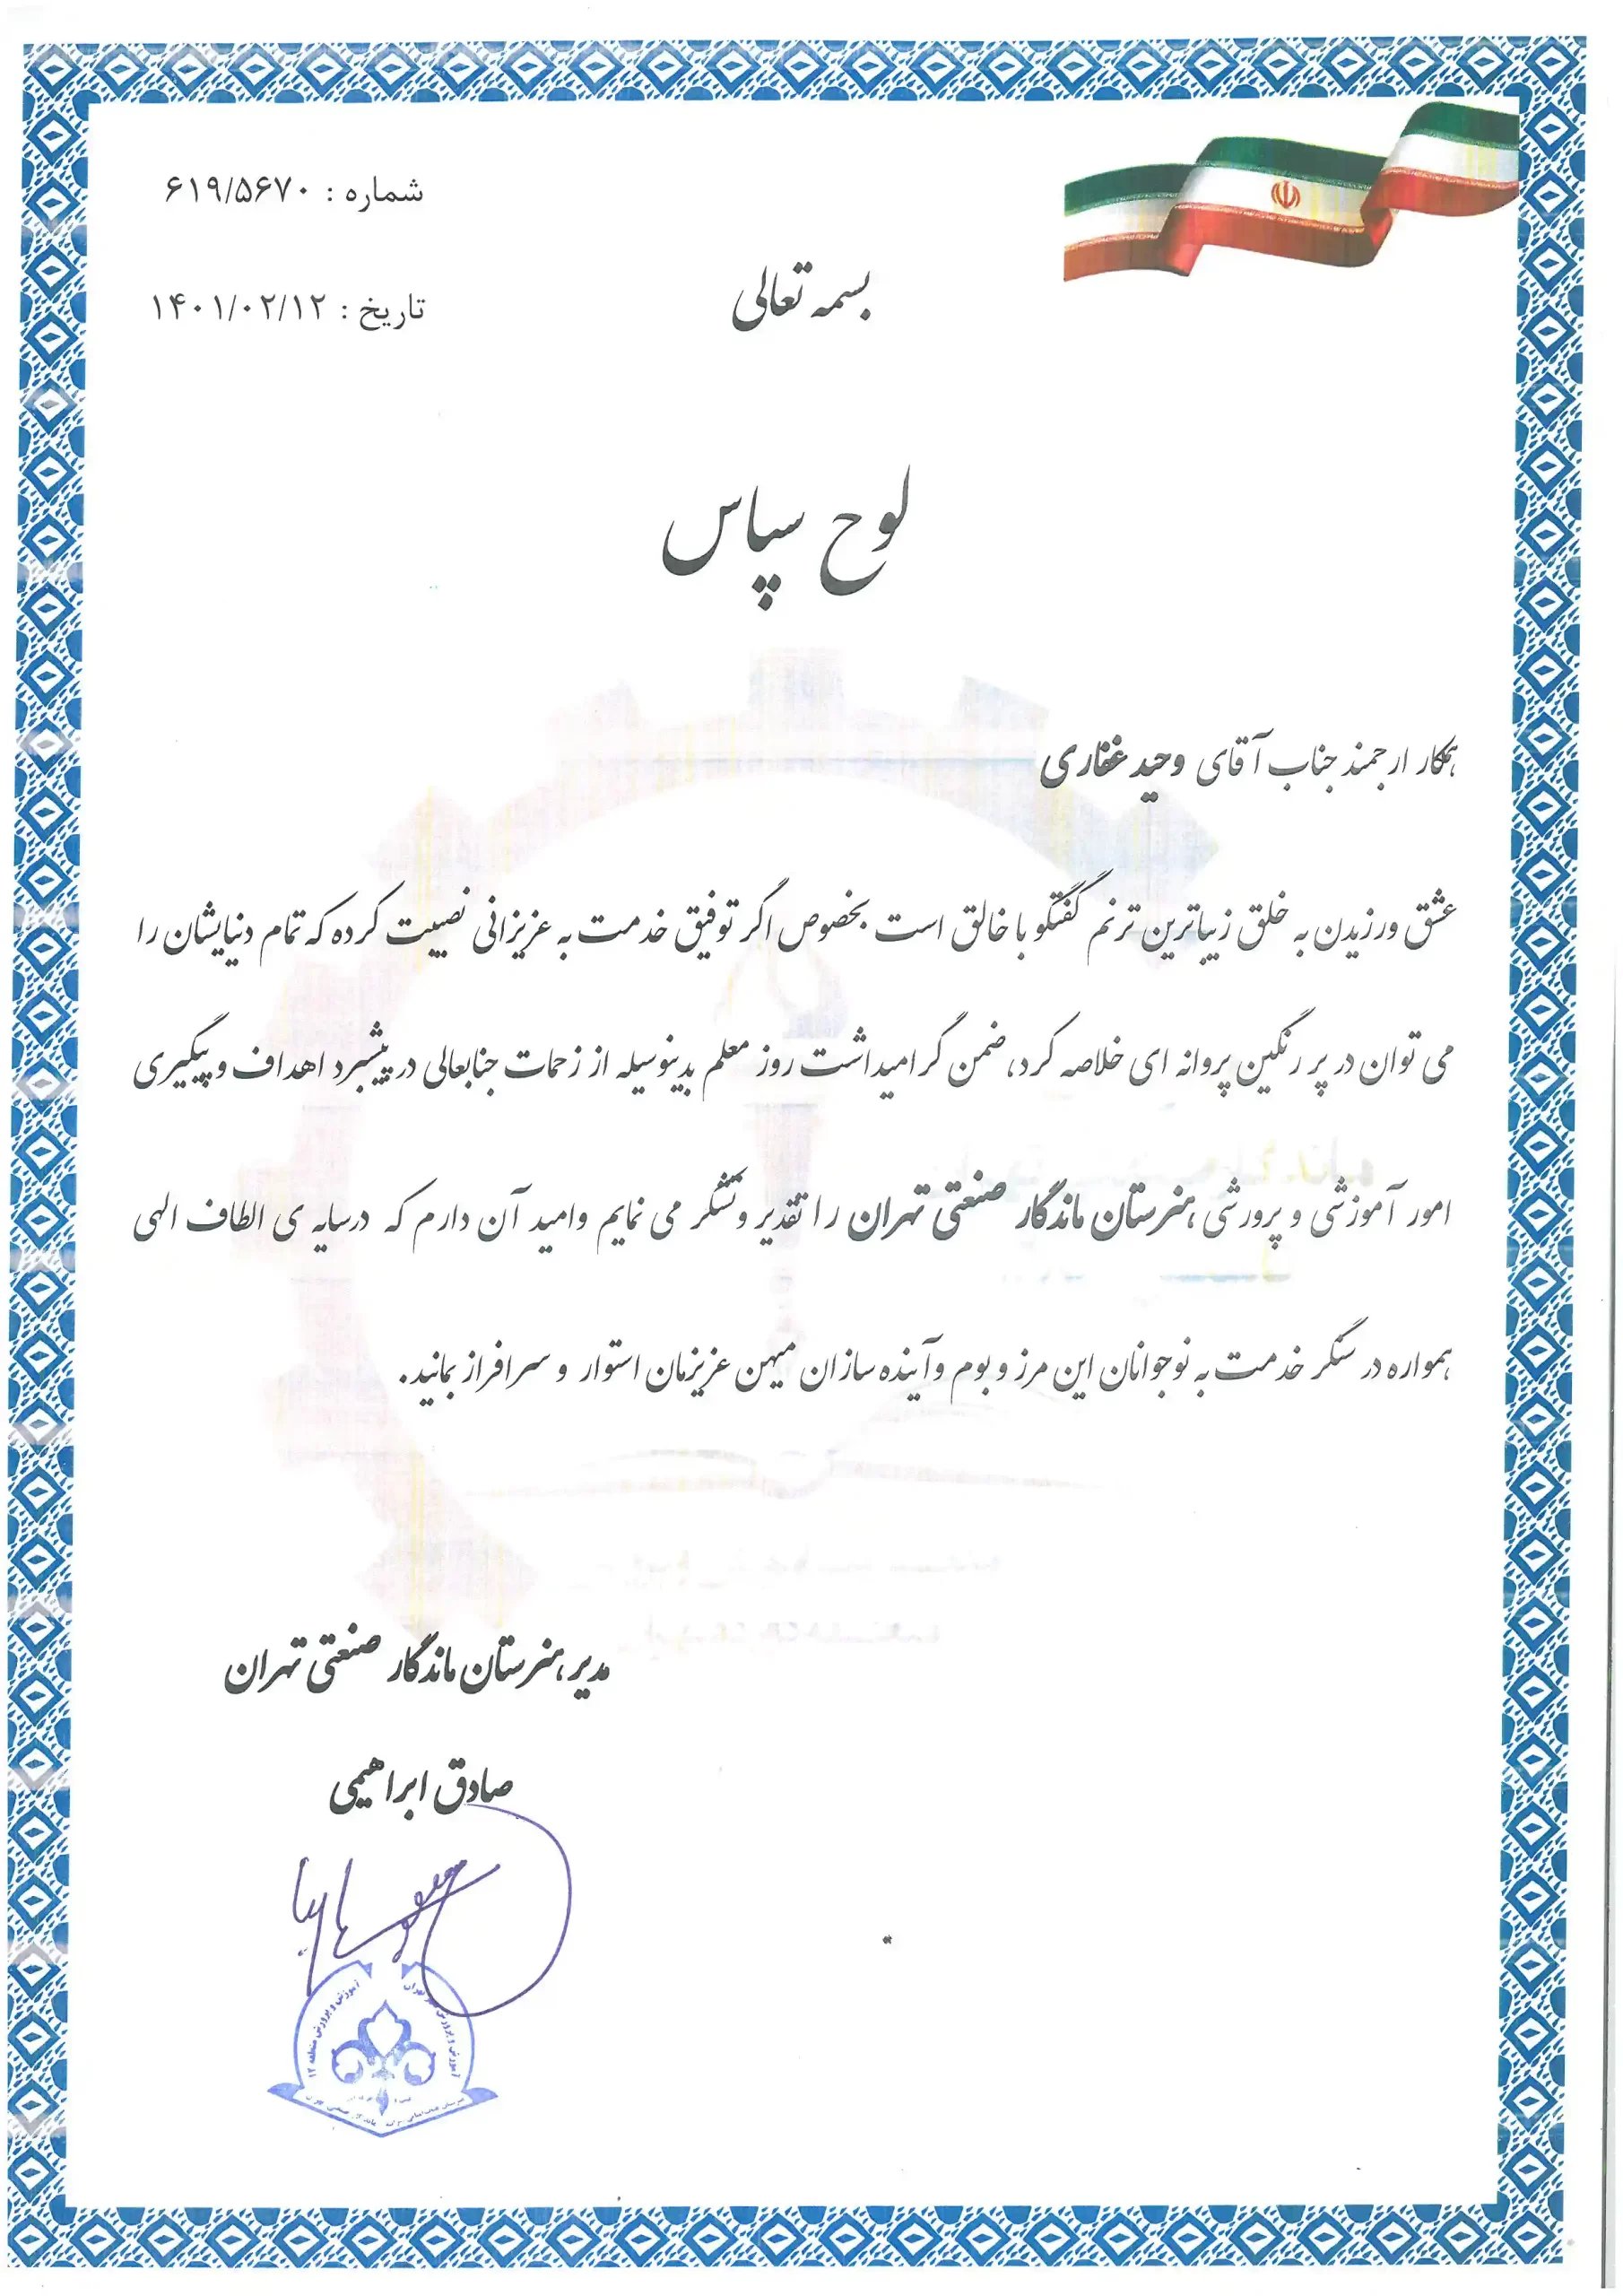 شماره : ۶۱۹/۵۶۷۰
تاریخ : ۱۴۰۱/۰۲/۱۲
بسمه تعالی
لوح سپاس
همکار ارجمند جناب آقای وحید غفاری
عشق ورزیدن به خلق زیباترین ترنم گفتگو با خالق است بخصوص اگر توفیق خدمت به عزیزانی نصیبت کرده که تمام دنیایشان را
می توان در پر رنگین پروانه ای خلاصه کرد، ضمن گرامیداشت روز معلم بدینوسیله از زحمات جنابعالی در پیشبرد اهداف و پیگیری
امور آموزشی و پرورشی هنرستان ماندگار صنعتی تهران را تقدیر و تشکر می نمایم وامید آن دارم که درسایه ی الطاف الهی
همواره در سنگر خدمت به نوجوانان این مرز و بوم و آینده سازان میهن عزیزمان استوار و سرافراز بمانید.
مدیر هنرستان ماندگار صنعتی تهران
صادق ابراهیمی
آموزش و پرورش شهر تهران
آموزش و پرورش منطقه ۱۲